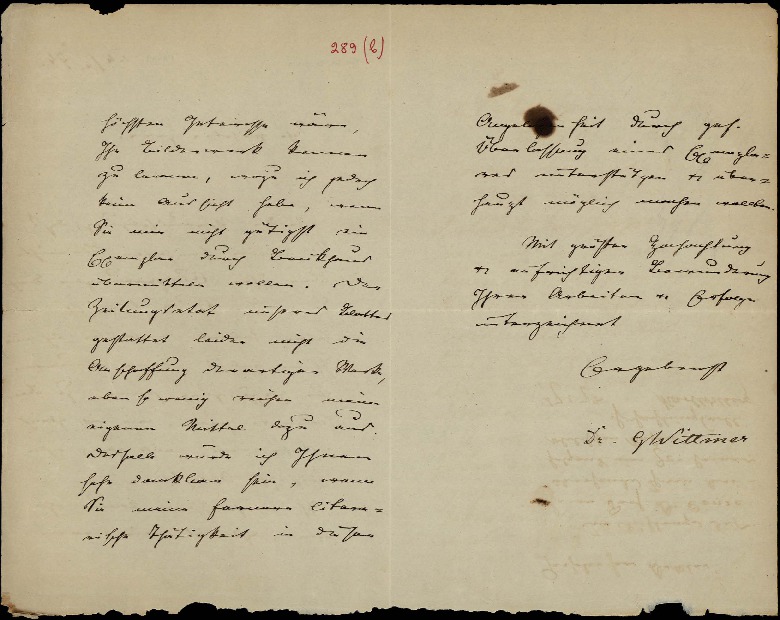 289 (6)
höchsten Interesse wäre,
Ihr Bilderwerk kennen
zu lernen, wozu ich jedoch
keine Aussicht habe, wenn
Sie mir nicht gütigst ein
Exemplar durch Brockhaus
übermitteln wollen. Der
Zeitungsetat unseres Blattes
gestattet leider nicht die
Anschaffung derartiger Werke,
ebenso wenig reichen meine
eigenen Mittel dazu aus.
Deshalb würde ich Ihnen
sehr dankbar sein, wenn
Sie meine fernere litera=
rische Thätigkeit in dieser
Angelegenheit durch gef.
Überlassung eines Exempla=
res unterstützen & über=
haupt möglich machen wollten.
Mit größter Hochachtung
& aufrichtiger Bewunderung
Ihrer Arbeiten & Erfolge
unterzeichnet
Ergebenst
Dr. GWittmer